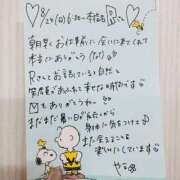 ♡8/24(日)6:30〜本指名Rさん♡
朝早くお仕事前に会いに来てくれて
本当にありがとう(TOT)♡
Rさんとお話していると自然と
笑顔があふれる幸せな時間です
♡もありがとうね。♡
まだまだ暑い日が続くから
気をつけてね
また会えることを
楽しみにしています